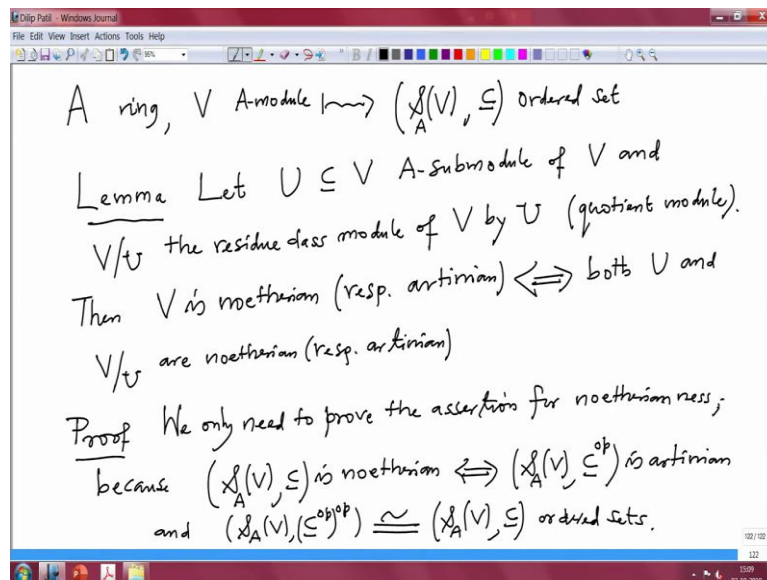 Dilip Patil - Windows Journal
File Edit View Insert Actions Tools Help
A ring, V A-module ⟼ (𝒮_A(V), ⊆) ordered set
Lemma Let U ⊆ V A-submodule of V and
V/U the residue class module of V by U (quotient module).
Then V is noetherian (resp. artinian) ⟺ both U and
V/U are noetherian (resp. artinian)
Proof We only need to prove the assertion for noetherianness,
because (𝒮_A(V), ⊆) is noetherian ⟺ (𝒮_A(V), ⊆^op) is artinian
and (𝒮_A(V), (⊆^op)^op) ≅ (𝒮_A(V), ⊆) ordered sets.
122 / 122
122
15:09